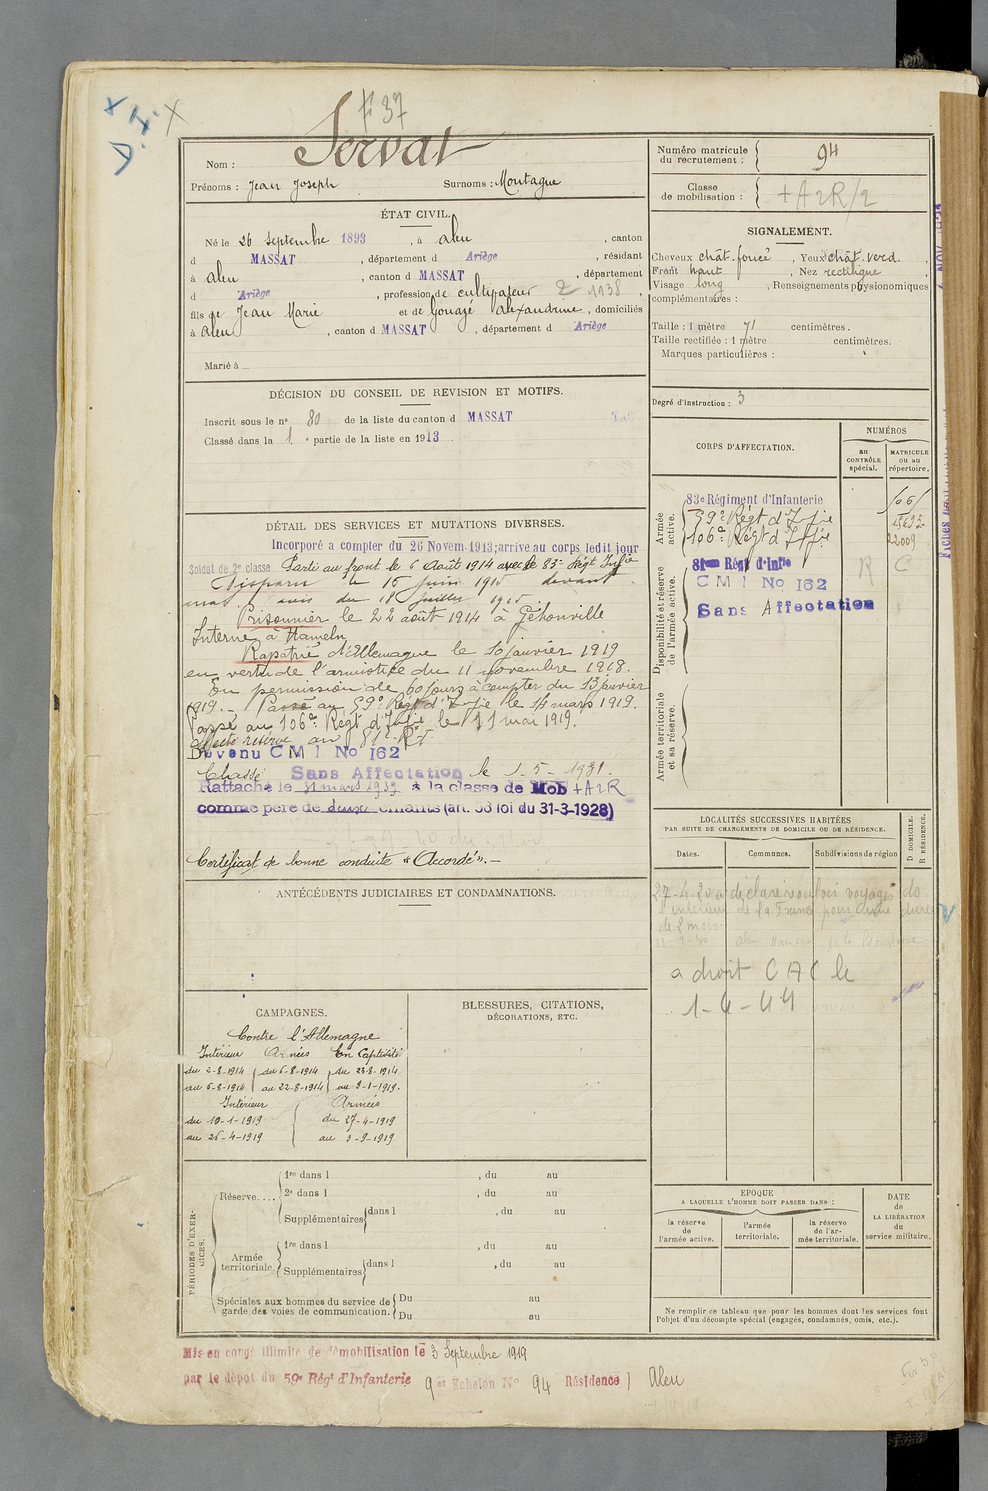 # 37
Nom : Servat
Prénoms : Jean Joseph Surnoms : Montagne
ÉTAT CIVIL.
Né le 26 septembre 1893, à Aleu, canton
d MASSAT, département d Ariège, résidant
à Aleu, canton d MASSAT, département
d Ariège, profession de cultivateur 2 1938,
fils de Jean Marie et de Gouazé Alexandrine, domiciliés
à Aleu, canton d MASSAT, département d Ariège
Marié à
DÉCISION DU CONSEIL DE REVISION ET MOTIFS.
Inscrit sous le n° 80 de la liste du canton d MASSAT
Classé dans la 1e partie de la liste en 1913.
DÉTAIL DES SERVICES ET MUTATIONS DIVERSES.
Incorporé a compter du 26 Novem. 1913; arrive au corps ledit jour
Soldat de 2e classe Parti au front le 6 Août 1914 avec le 83e Régt Infie
Disparu le 16 juin 1915 devant
avis du 18 juillet 1915.
Prisonnier le 22 août 1914 à
Interné à Hameln
Rapatrié d'Allemagne le 10 janvier 1919
en vertu de l'armistice du 11 novembre 1918.
En permission de 60 jours à compter du 13 janvier
1919. - Passé au 59e Régt d'Infie le 14 mars 1919.
Passé au 106e Régt d'Infie le 11 mai 1919.
Affecté réserve au 81e Rt
Devenu C M I No 162
Classé Sans Affectation le 1-5-1931.
Rattaché le 31 mars 1939 à la classe de Mob + A2R
comme père de deux enfants (art. 58 loi du 31-3-1928)
Certificat de bonne conduite "Accordé". -
ANTÉCÉDENTS JUDICIAIRES ET CONDAMNATIONS.
CAMPAGNES.
Contre l'Allemagne
Intérieur Armées En Captivité
du 2-8-1914 du 6-8-1914 du 23-8-1914
au 5-8-1914 au 22-8-1914 au 9-1-1919.
Intérieur Armées
du 10-1-1919 du 27-4-1919
au 26-4-1919 au 3-9-1919
BLESSURES, CITATIONS,
DÉCORATIONS, ETC.
PÉRIODES D'EXERCICES.
Réserve....
1re dans l , du au
2e dans l , du au
Supplémentaires dans l , du au
Armée territoriale.
1re dans l , du au
Supplémentaires dans l , du au
Spéciales aux hommes du service de garde des voies de communication.
Du au
Du au
Mis en congé illimité de démobilisation le 3 Septembre 1919
par le dépôt du 59e Régt d'Infanterie 9 er Echelon No 94 Résidence) Aleu
Numéro matricule du recrutement : 94
Classe de mobilisation : + A2R/2
SIGNALEMENT.
Cheveux chât. foncé, Yeux chât. verd.,
Front haut, Nez rectiligne,
Visage long, Renseignements physionomiques
complémentaires :
Taille : 1 mètre 71 centimètres.
Taille rectifiée : 1 mètre centimètres.
Marques particulières :
Degré d'instruction : 3
CORPS D'AFFECTATION.
NUMÉROS
au CONTRÔLE spécial.
MATRICULE ou au répertoire.
Armée active.
83e Régiment d'Infanterie
59e Régt d'Infie
106e Régt d'Infie 22009
Disponibilité et réserve de l'armée active.
81me Régt d'Infie R C
C M I No 162
Sans Affectation
Armée territoriale et sa réserve.
LOCALITÉS SUCCESSIVES HABITÉES
PAR SUITE DE CHANGEMENTS DE DOMICILE OU DE RÉSIDENCE.
D DOMICILE. R RÉSIDENCE.
Dates. Communes. Subdivisions de région
27-4-20 a déclaré vouloir voyager ds
l'intérieur de la France pour une durée
de 2 mois
a droit C A C le
1-4-44
EPOQUE
A LAQUELLE L'HOMME DOIT PASSER DANS :
la réserve de l'armée active.
l'armée territoriale.
la réserve de l'armée territoriale.
DATE de LA LIBÉRATION du service militaire.
Ne remplir ce tableau que pour les hommes dont les services font
l'objet d'un décompte spécial (engagés, condamnés, omis, etc.).